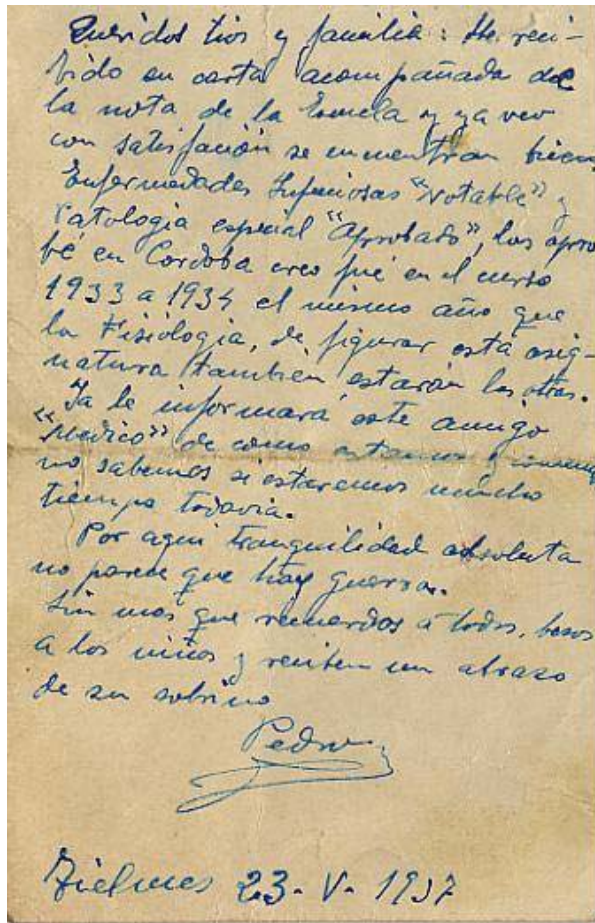 Queridos tios y familia: He reci-
bido su carta acompañada de
la nota de la Escuela y ya veo
con satisfación se encuentran bien,
Enfermedades Infecciosas "Notable" y
Patologia especial "Aprobado", las apro
bé en Cordoba creo fué en el curso
1933 a 1934 el mismo año que
la Fisiologia, de figurar está asig-
natura tambien estarán las otras.
Ya le informará este amigo
"Medico" de como estamos y
no sabemos si estaremos mucho
tiempo todavia.
Por aqui tranquilidad absoluta
no parece que hay guerra.
Sin mas que recuerdos a todos, besos
a los niños y reciben un abrazo
de su sobrino
Pedro
Tielmes 23-V-1937